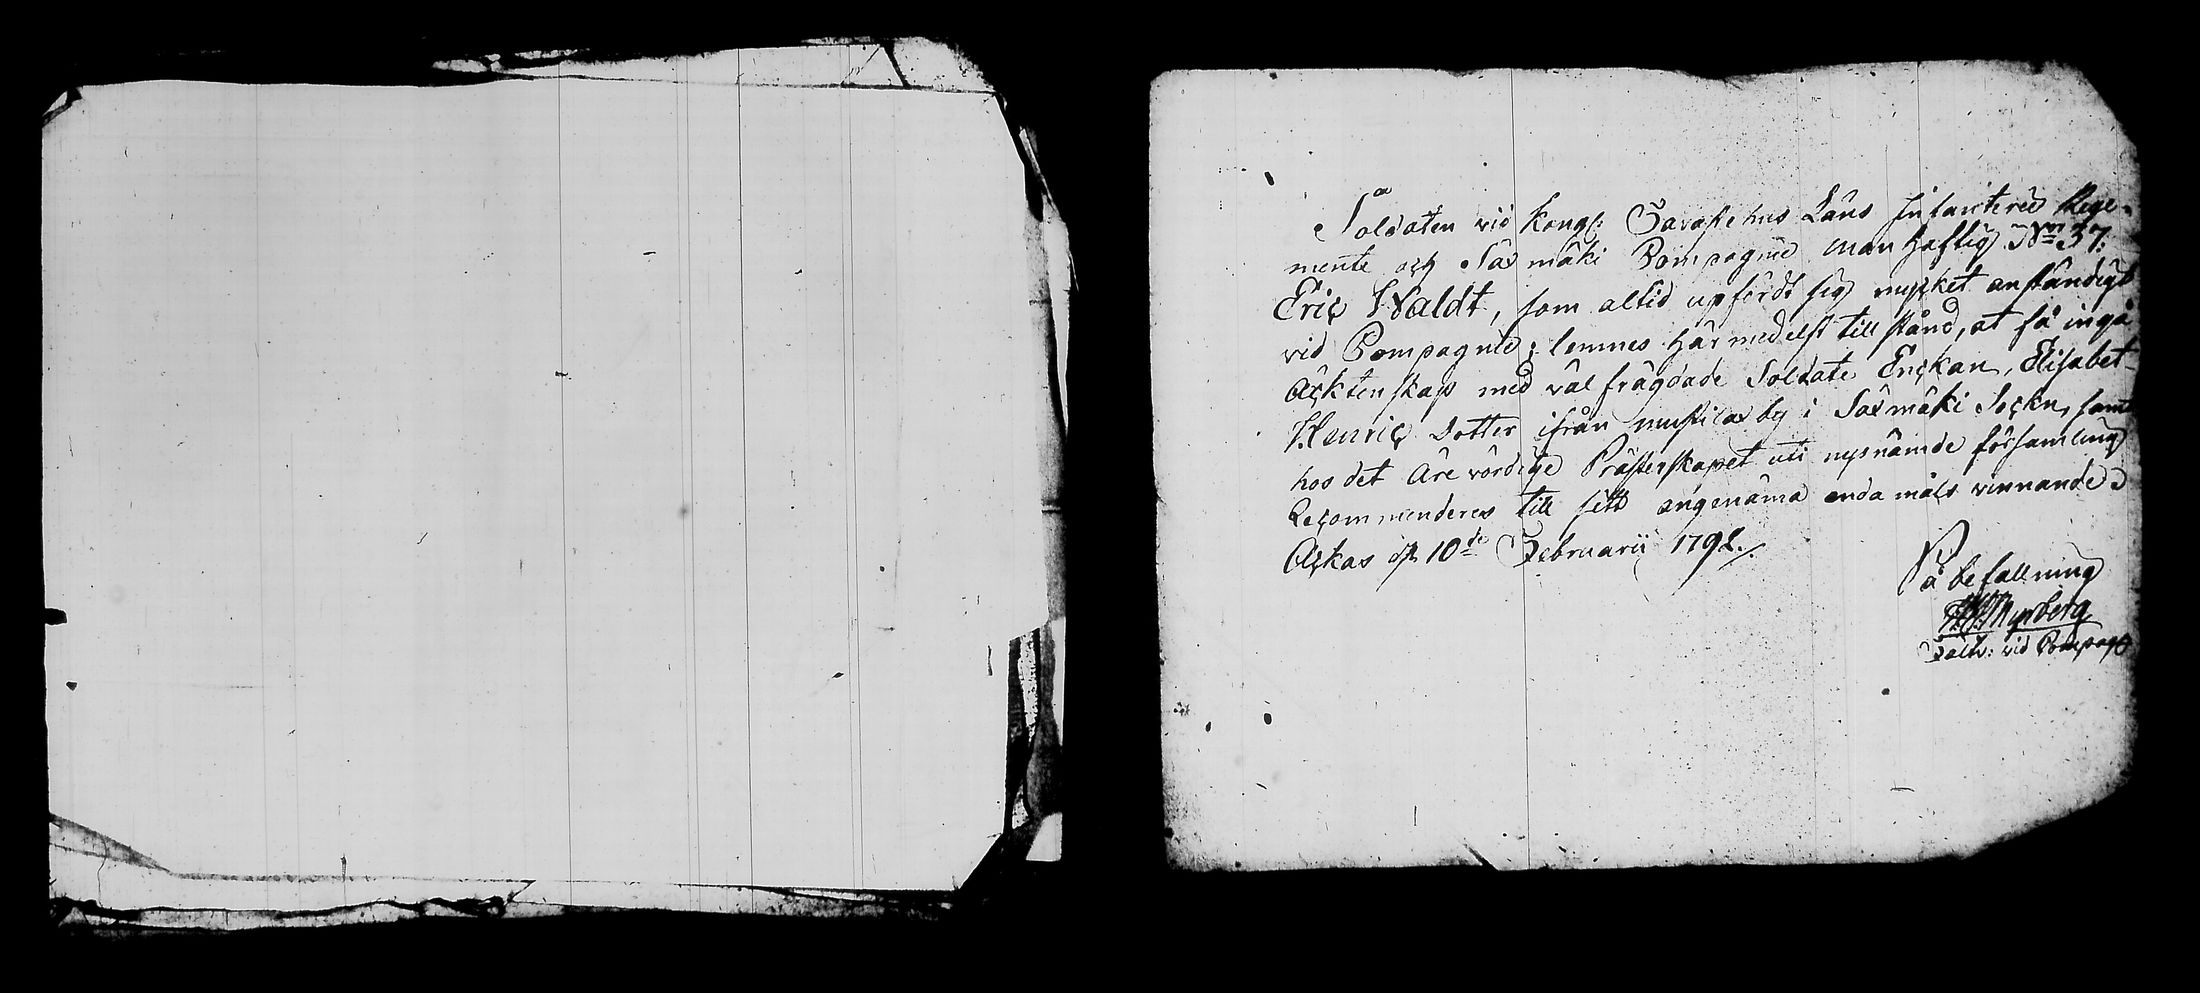 Soldaten vid Kongl: Tavastehus Läns Infanterie Rege-
mente och Säxmäki Compagnie manhaftig N:o 37:
Eric Waldt, som altid upfördt sig mycket anständigt
vid Compagnie; lemnes härmedelst tillstånd, at få ingå
Äcktenskap med väl frägdade Soldate Enckan, Elisabet
Henric Dotter ifrån by i Säxmäki Sockn, samt
hos det Ärevördige Prästerskapet uti nysnämde församling
Recommenderes till sitt angenäma ändamåls vinnande
Ackas d. 10de Februarii 1792./.
På befallning
Nyberg
Fältv: vid Compagn